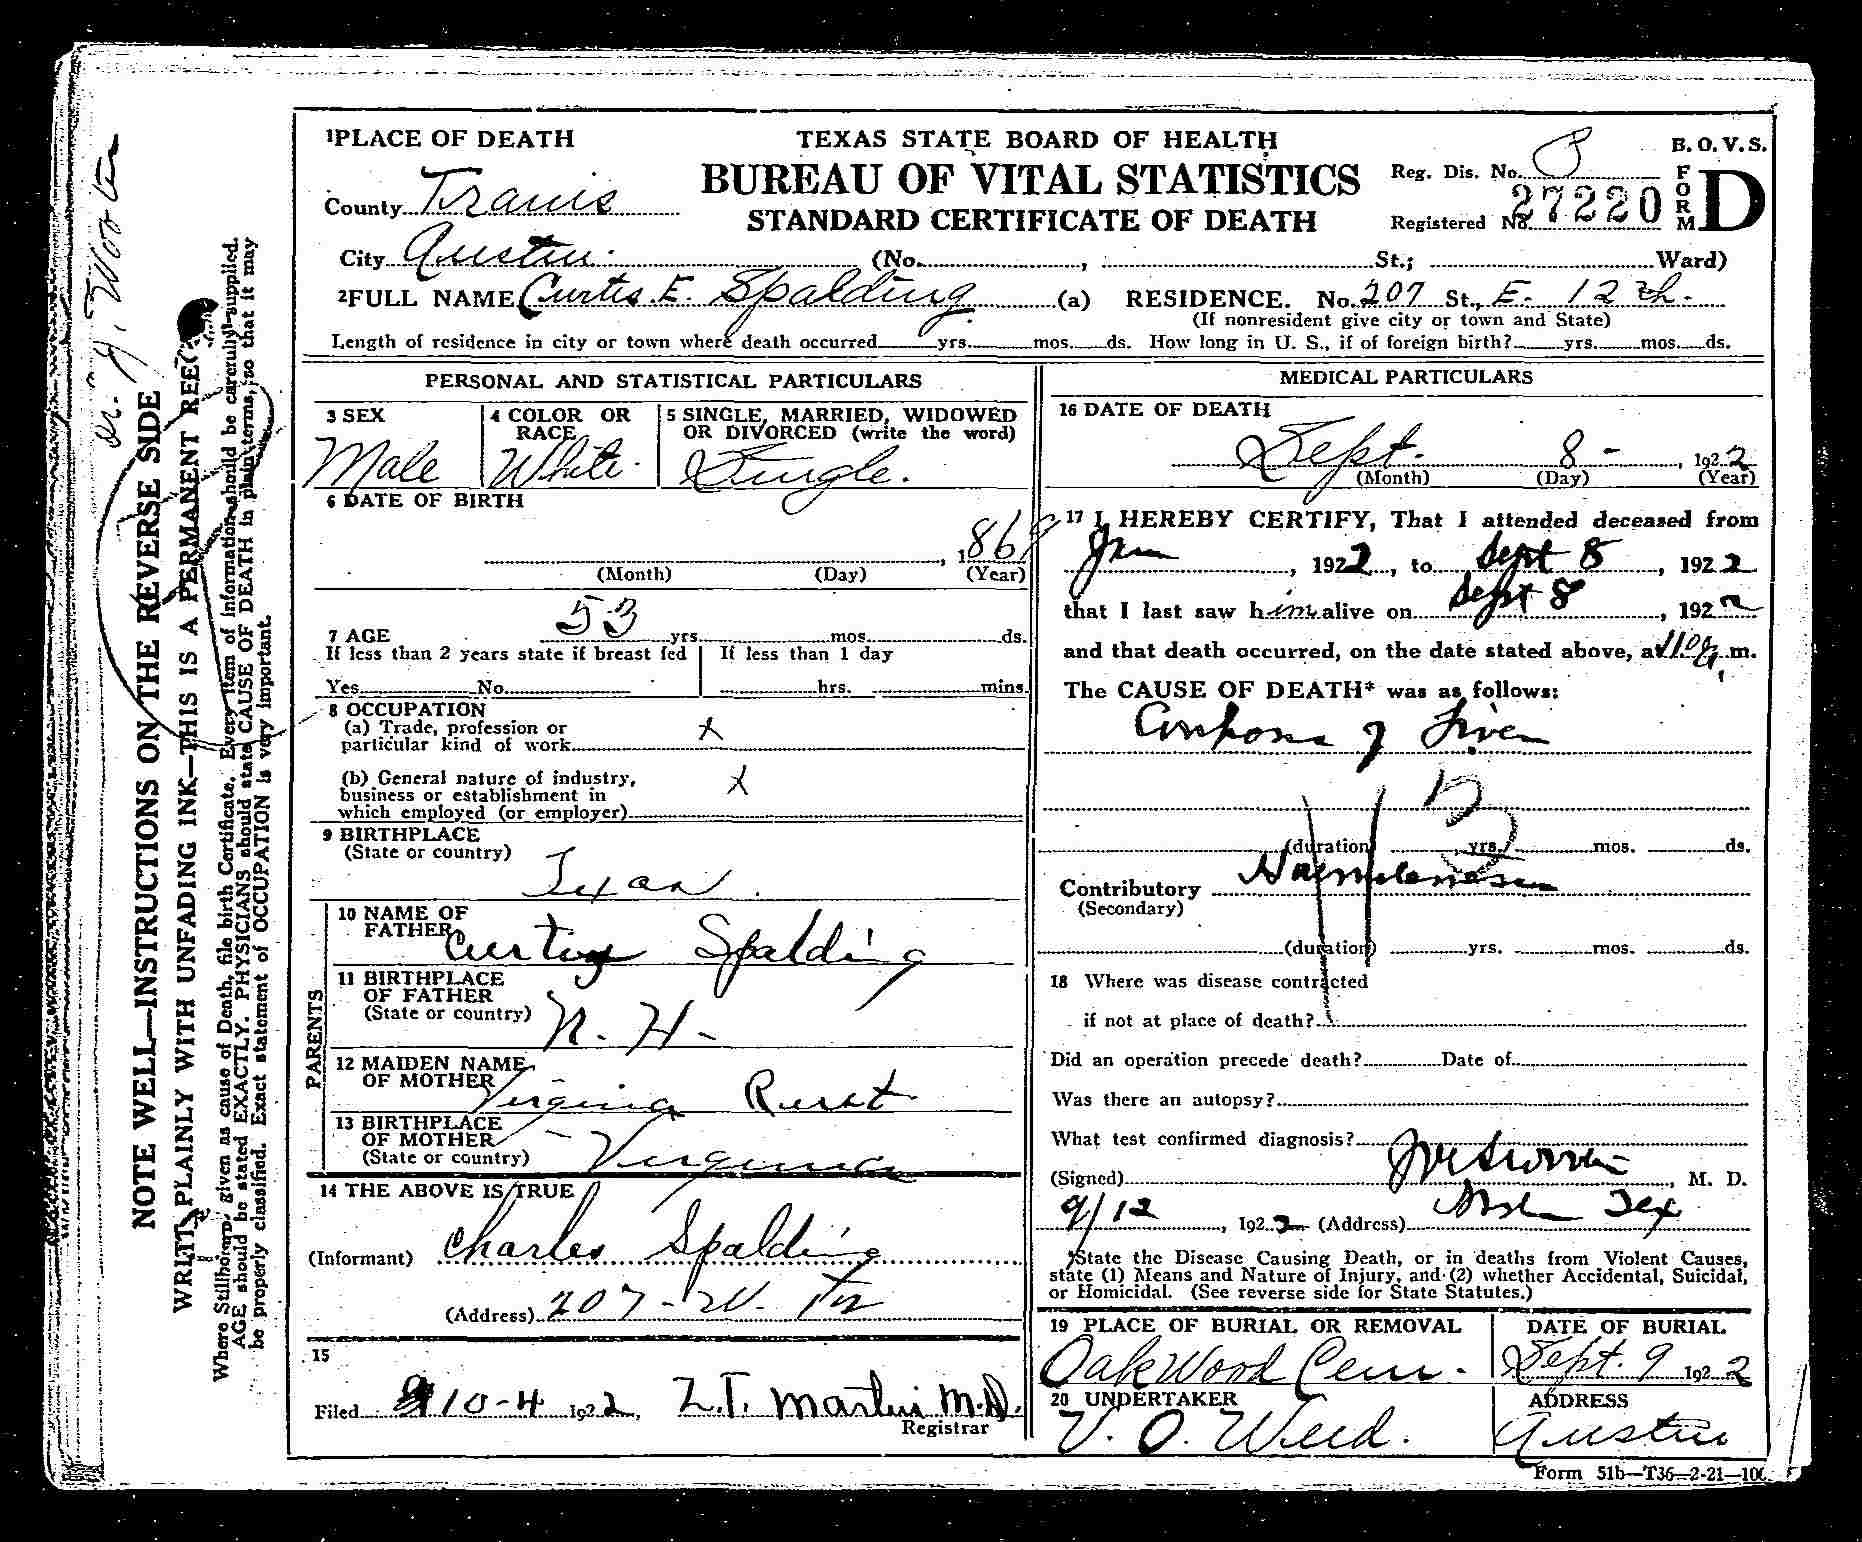 1PLACE OF DEATH
TEXAS STATE BOARD OF HEALTH
B. O. V. S.
BUREAU OF VITAL STATISTICS
Reg. Dis. No.
FORM D
County Travis
STANDARD CERTIFICATE OF DEATH
Registered No. 27220
City Austin (No. , St.; Ward)
2FULL NAME Curtis. E. Spalding (a) RESIDENCE. No. 207 St., E. 12th.
(If nonresident give city or town and State)
Length of residence in city or town where death occurred yrs. mos. ds. How long in U. S., if of foreign birth? yrs. mos. ds.
PERSONAL AND STATISTICAL PARTICULARS
3 SEX
Male
4 COLOR OR RACE
White
5 SINGLE, MARRIED, WIDOWED
OR DIVORCED (write the word)
Single.
6 DATE OF BIRTH
, 1869
(Month) (Day) (Year)
7 AGE 53 yrs. mos. ds.
If less than 2 years state if breast fed
Yes No
If less than 1 day
hrs. mins.
8 OCCUPATION
(a) Trade, profession or
particular kind of work x
(b) General nature of industry,
business or establishment in
which employed (or employer) x
9 BIRTHPLACE
(State or country)
Texas.
PARENTS
10 NAME OF
FATHER Spalding
11 BIRTHPLACE
OF FATHER
(State or country) N. H-
12 MAIDEN NAME
OF MOTHER Virginia Rust
13 BIRTHPLACE
OF MOTHER
(State or country) Virginia
14 THE ABOVE IS TRUE
(Informant) Charles Spalding
(Address) 207- W. 12
15
Filed 10-4 1922, Z.T. Martin M.D.
Registrar
MEDICAL PARTICULARS
16 DATE OF DEATH
Sept. 8 - , 1922
(Month) (Day) (Year)
17 I HEREBY CERTIFY, That I attended deceased from
Jan , 1922, to Sept 8 , 1922
that I last saw him alive on Sept 8 , 1922
and that death occurred, on the date stated above, at m.
The CAUSE OF DEATH* was as follows:
of Liver
(duration) yrs. mos. ds.
Contributory
(Secondary)
(duration) yrs. mos. ds.
18 Where was disease contracted
if not at place of death?
Did an operation precede death? Date of
Was there an autopsy?
What test confirmed diagnosis?
(Signed) , M. D.
9/12 , 1922 (Address) Tex
*State the Disease Causing Death, or in deaths from Violent Causes,
state (1) Means and Nature of Injury, and (2) whether Accidental, Suicidal,
or Homicidal. (See reverse side for State Statutes.)
19 PLACE OF BURIAL OR REMOVAL
Oakwood Cem.
DATE OF BURIAL
Sept. 9 1922
20 UNDERTAKER
V. O. Weed.
ADDRESS
Austin
Form 51b—T36—2-21—100
Dr. J. Wooten
NOTE WELL—INSTRUCTIONS ON THE REVERSE SIDE
WRITE PLAINLY WITH UNFADING INK—THIS IS A PERMANENT REC
Where Stillborn, given as cause of Death, file birth Certificate. Every item of information should be carefully supplied.
AGE should be stated EXACTLY. PHYSICIANS should state CAUSE OF DEATH in plain terms, so that it may
be properly classified. Exact statement of OCCUPATION is very important.